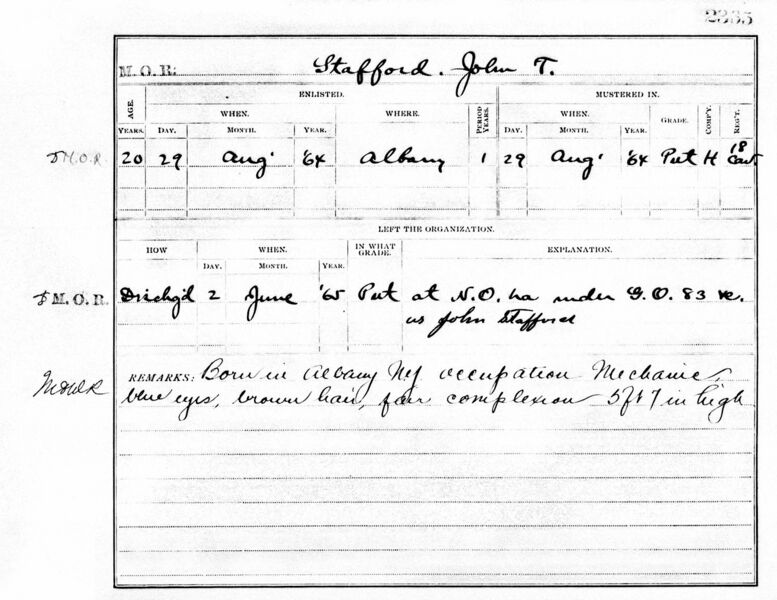 2335
M. O. R: Stafford. John T.
ENLISTED. MUSTERED IN.
AGE. WHEN. WHERE. PERIOD YEARS. WHEN. GRADE. COMP'Y. REG'T.
YEARS. DAY. MONTH. YEAR. DAY. MONTH. YEAR.
M.O.R 20 29 Aug' '64 Albany 1 29 Aug' '64 Pvt H 18 Cav.
LEFT THE ORGANIZATION.
HOW WHEN. IN WHAT GRADE. EXPLANATION.
DAY. MONTH. YEAR.
M.O.R. Dischg'd 2 June '65 Pvt at N.O. La under G.O. 83 &c.
as John Stafford
REMARKS: Born in Albany NY occupation Mechanic,
blue eyes, brown hair, fair complexion 5 ft 7 in high